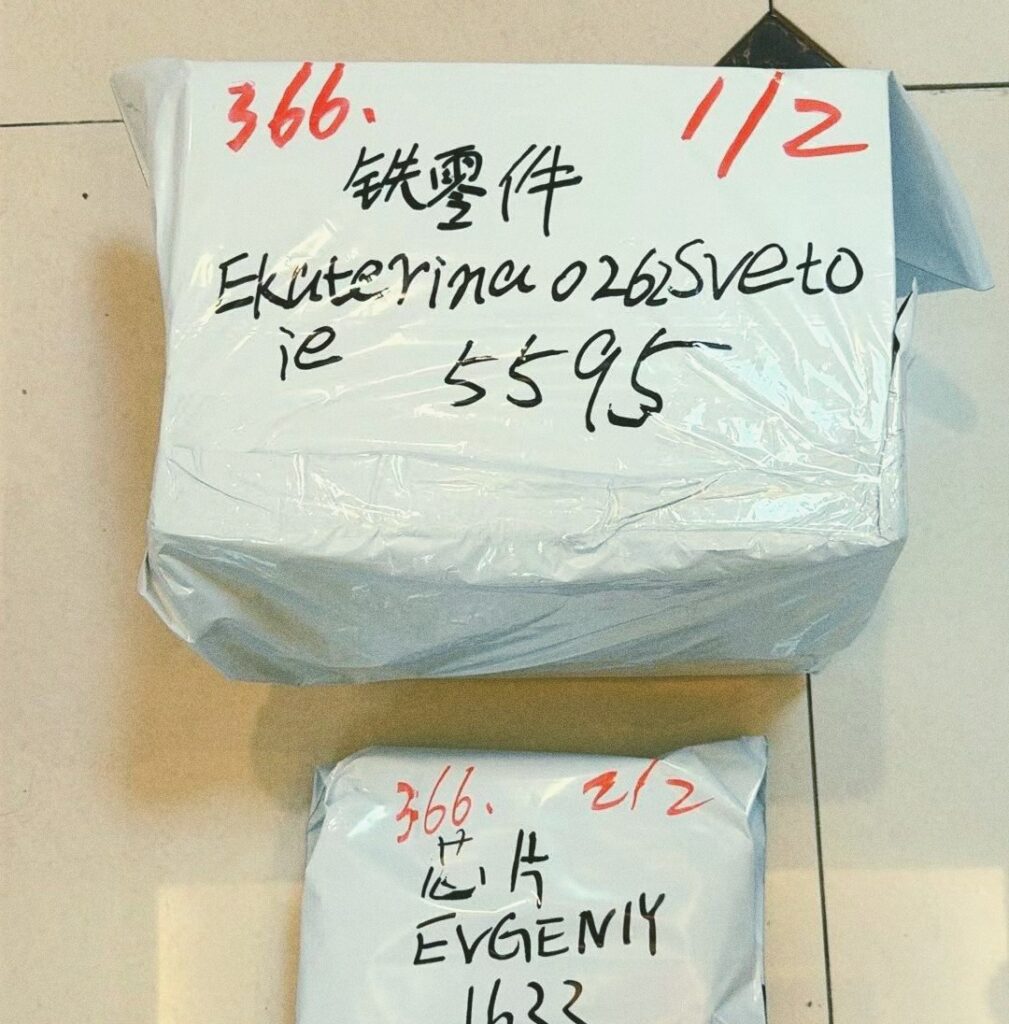 366. 1/2
铁零件
Ekaterina 0262Sveto
ie 5595
366. 2/2
芯片
EVGENIY
1633